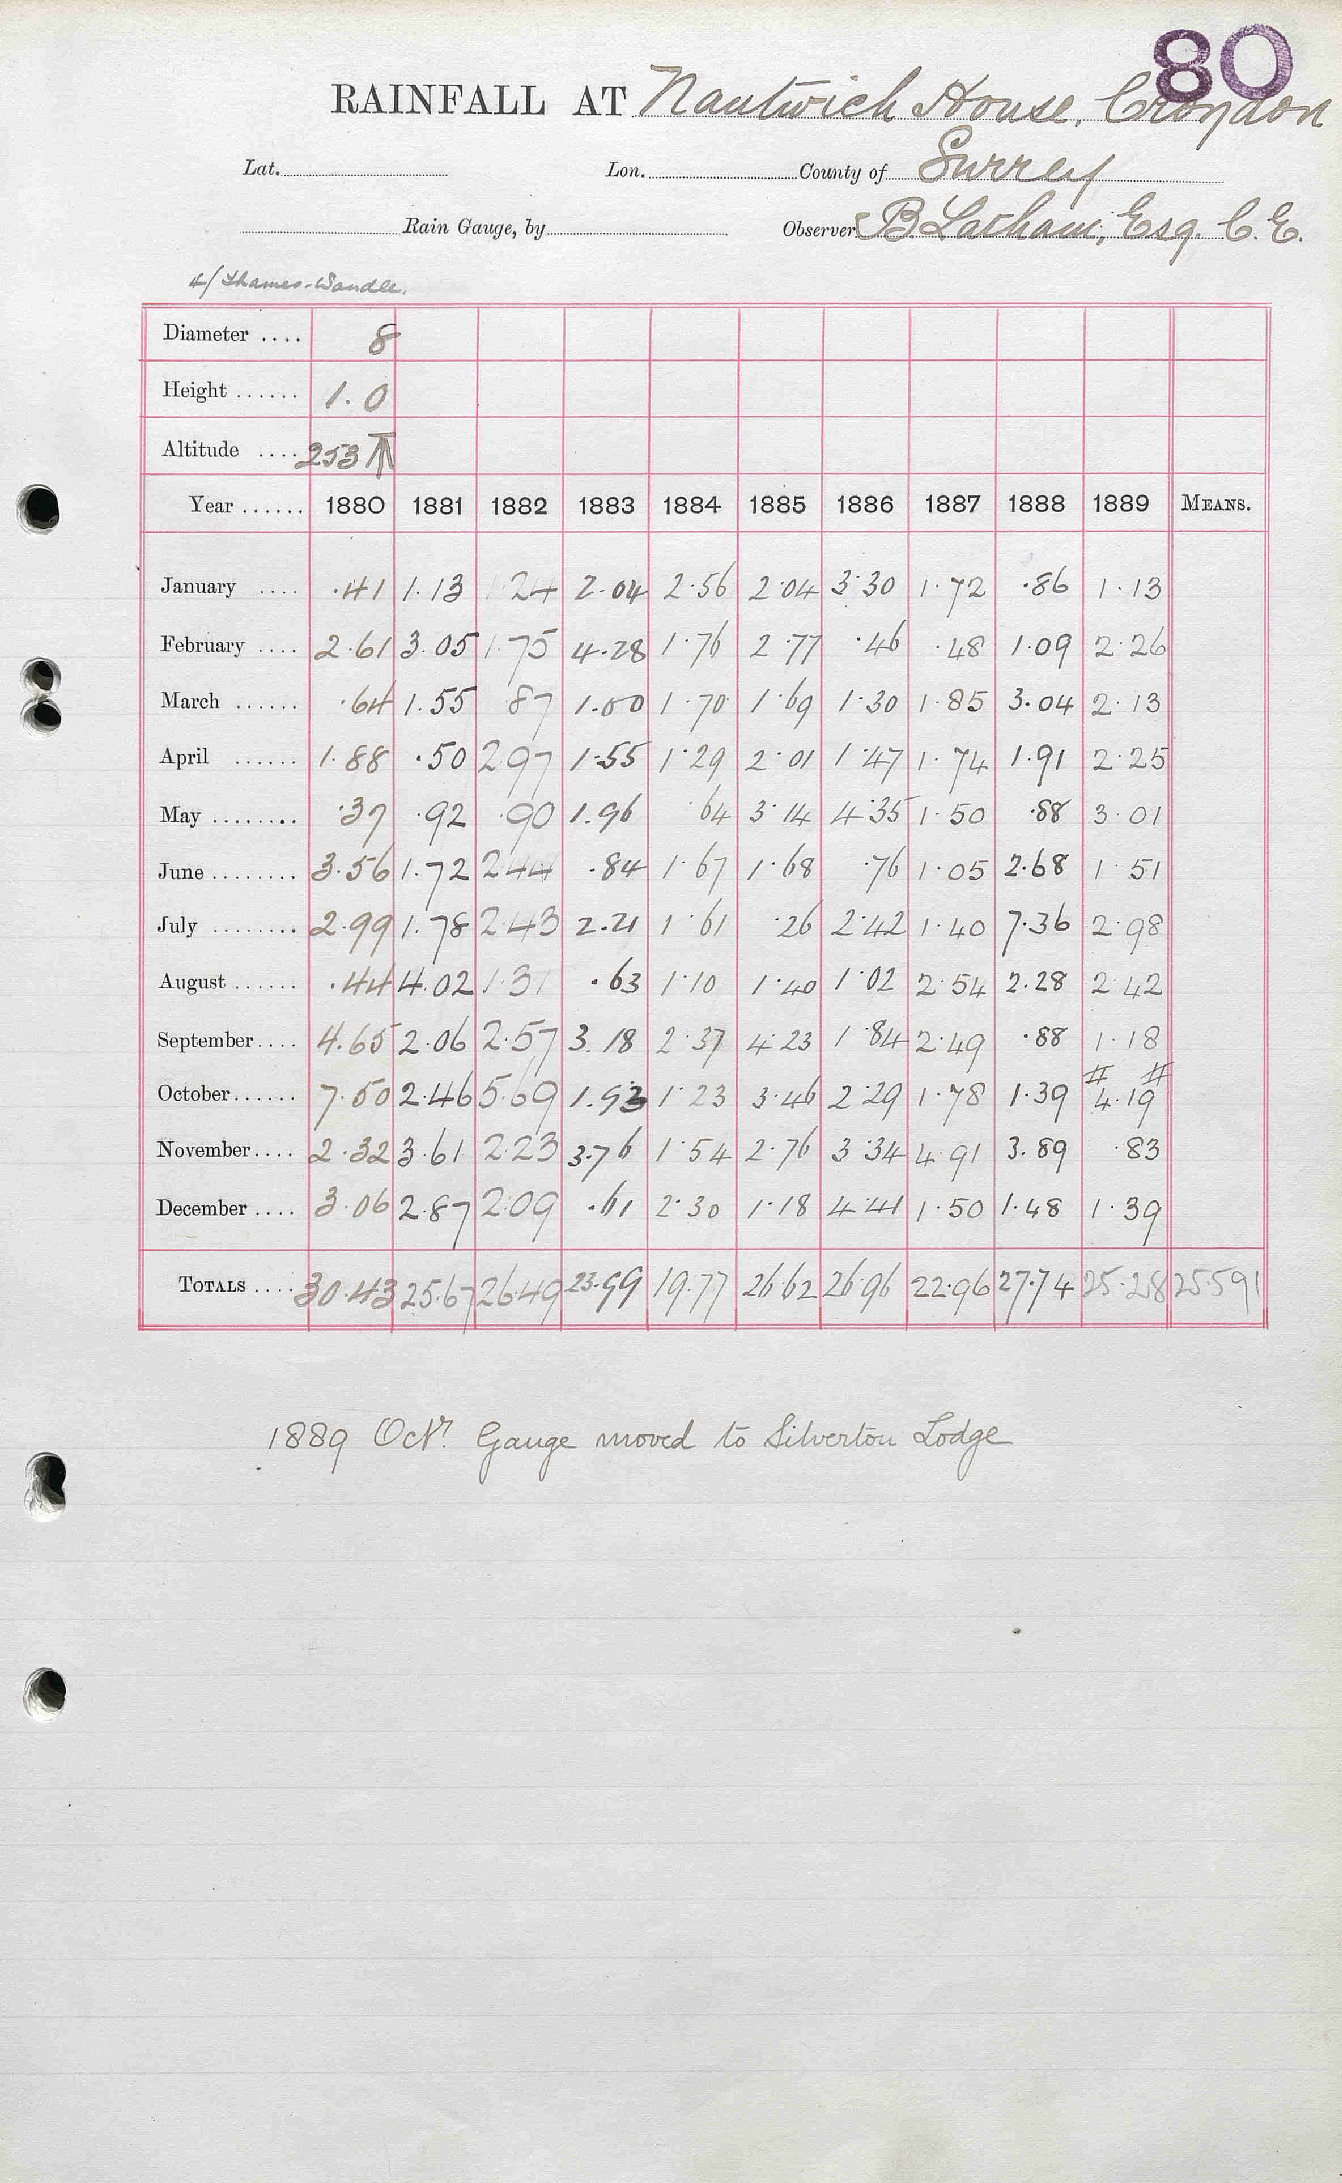 80
RAINFALL AT Nantwich House, Croydon
Lat. Lon. County of Surrey
Rain Gauge, by Observer B. Latham, Esq. C.E.
4/ Thames-Wandle.
Diameter .... 8
Height ...... 1.0
Altitude .... 253 ⇑
Year ...... 1880 1881 1882 1883 1884 1885 1886 1887 1888 1889 MEANS.
January .... .41 1.13 1.24 2.04 2.56 2.04 3.30 1.72 .86 1.13
February .... 2.61 3.05 1.75 4.28 1.76 2.77 .46 .48 1.09 2.26
March ...... .64 1.55 .87 1.00 1.70 1.69 1.30 1.85 3.04 2.13
April ...... 1.88 .50 2.97 1.55 1.29 2.01 1.47 1.74 1.91 2.25
May ........ .37 .92 .90 1.96 .64 3.14 4.35 1.50 .88 3.01
June ........ 3.56 1.72 2.44 .84 1.67 1.68 .76 1.05 2.68 1.51
July ........ 2.99 1.78 2.43 2.21 1.61 .26 2.42 1.40 7.36 2.98
August ...... .44 4.02 1.31 .63 1.10 1.40 1.02 2.54 2.28 2.42
September.... 4.65 2.06 2.57 3.18 2.37 4.23 1.84 2.49 .88 1.18
October...... 7.50 2.46 5.69 1.93 1.23 3.46 2.29 1.78 1.39 # 4.19 #
November.... 2.32 3.61 2.23 3.76 1.54 2.76 3.34 4.91 3.89 .83
December .... 3.06 2.87 2.09 .61 2.30 1.18 4.41 1.50 1.48 1.39
TOTALS .... 30.43 25.67 26.49 23.99 19.77 26.62 26.96 22.96 27.74 25.28 25.591
1889 Octr. Gauge moved to Silverton Lodge